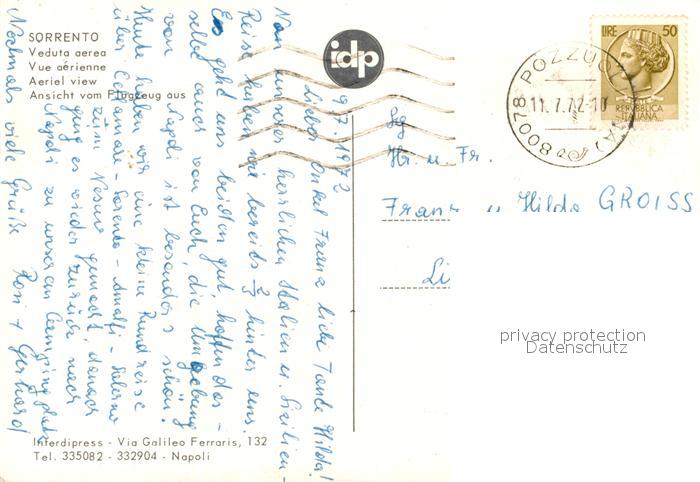 SORRENTO
Veduta aerea
Vue aérienne
Aeriel view
Ansicht vom Flugzeug aus
idp
9.7.1972
Lieber Onkel Franz, liebe Tante Hilda!
Von unserer herrlichen Italien u. Sizilien-
Reise haben wir bereits 2/3 hinter uns.
Es geht uns beiden gut, hoffen das-
selbe auch von Euch, die Umgebung
von Napoli ist besonders schön.
Heute haben wir eine kleine Rundreise
über - Sorrento - Amalfi - Salerno
zum Vesuv gemacht, danach
ging es wieder zurück nach
Napoli zu unserem Campingplatz
Nochmals viele Grüße Rosi + Gerhard
Interdipress - Via Galileo Ferraris, 132
Tel. 335082 - 332904 - Napoli
LIRE 50
REPUBBLICA
ITALIANA
80078 POZZUOLI (NA)
11.7.72-10
Hr. u. Fr.
Franz u Hilda GROISS
Li
privacy protection
Datenschutz